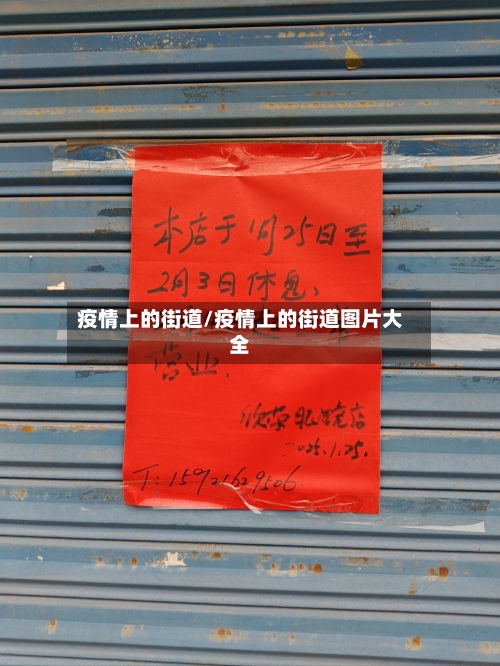 本店于1月25日至
2月3日休息,
疫情上的街道/疫情上的街道图片大
全
营业.
欣荣眼镜店
2025.1.25.
T:15921629506